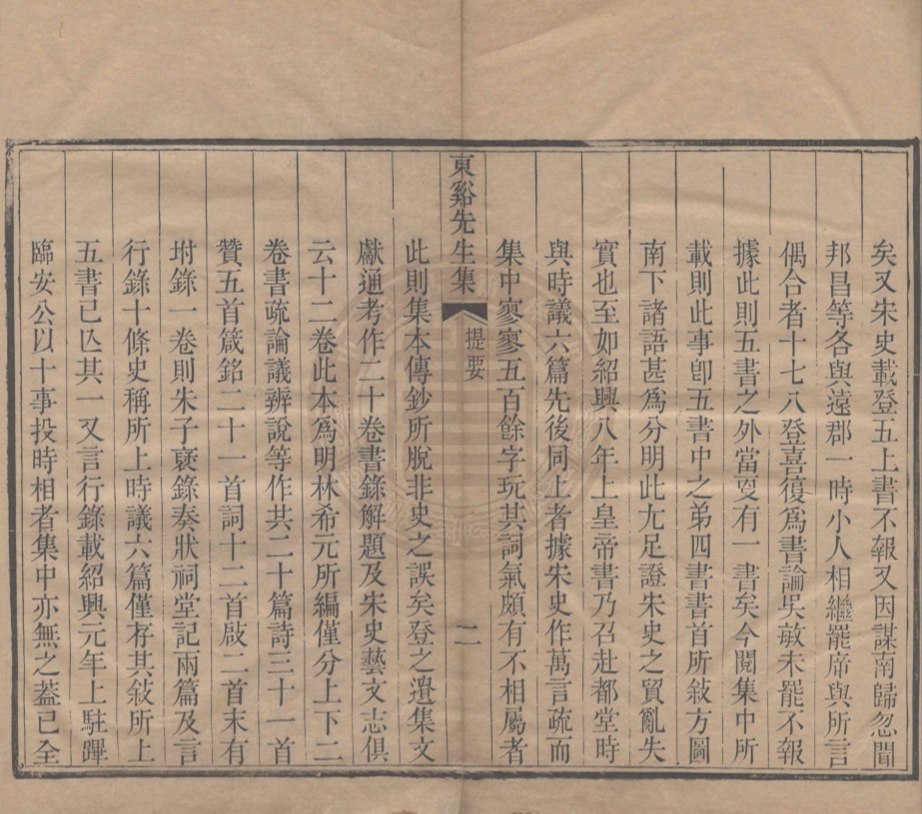 矣又宋史載登五上書不報又因謀南歸忽聞
邦昌等各與遠郡一時小人相繼罷庶與所言
偶合者十七八登喜復爲書論吳敏未罷不報
據此則五書之外當更有一書矣今閱集中所
載則此事卽五書中之弟四書書首所敍方圖
南下諸語甚爲分明此尤足證宋史之貿亂失
實也至如紹興八年上皇帝書乃召赴都堂時
與時議六篇先後同上者據宋史作萬言疏而
集中寥寥五百餘字玩其詞氣頗有不相屬者
東谿先生集 提要 二
此則集本傳鈔所脫非史之誤矣登之遺集文
獻通考作二十卷書錄解題及宋史藝文志俱
云十二卷此本爲明林希元所編僅分上下二
卷書疏論議辨說等作共二十篇詩三十一首
贊五首箴銘二十一首詞十二首啟二首末有
坿錄一卷則朱子裦錄奏狀祠堂記兩篇及言
行錄十條史稱所上時議六篇僅存其敍所上
五書已亾其一又言行錄載紹興元年上駐蹕
臨安公以十事投時相者集中亦無之葢已全